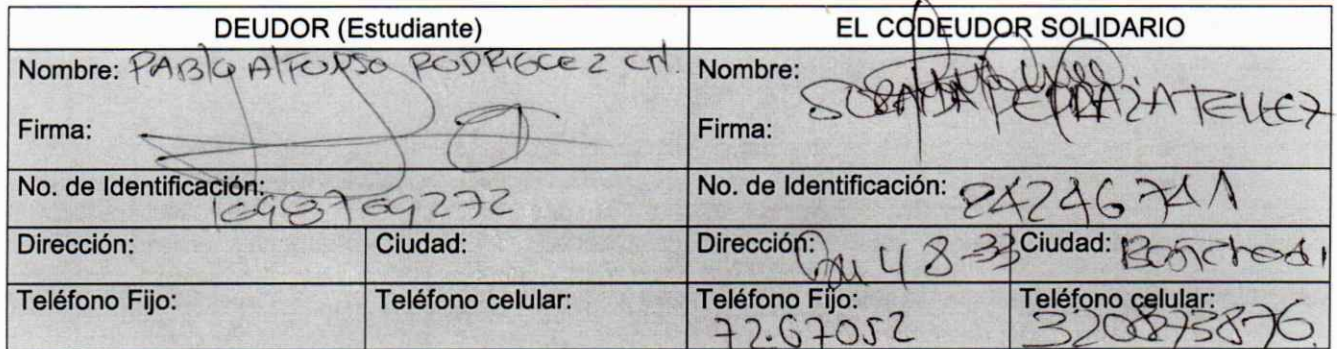 DEUDOR (Estudiante) EL CODEUDOR SOLIDARIO
Nombre: PABlO AlFONSO RODRIGUEZ Nombre:
PEDRAZA TELLEZ
Firma: Firma:
No. de Identificación: 1098769272 No. de Identificación:
Dirección: Ciudad: Dirección: 48-33 Ciudad:
Teléfono Fijo: Teléfono celular: Teléfono Fijo: 7267052 Teléfono celular: 320873876